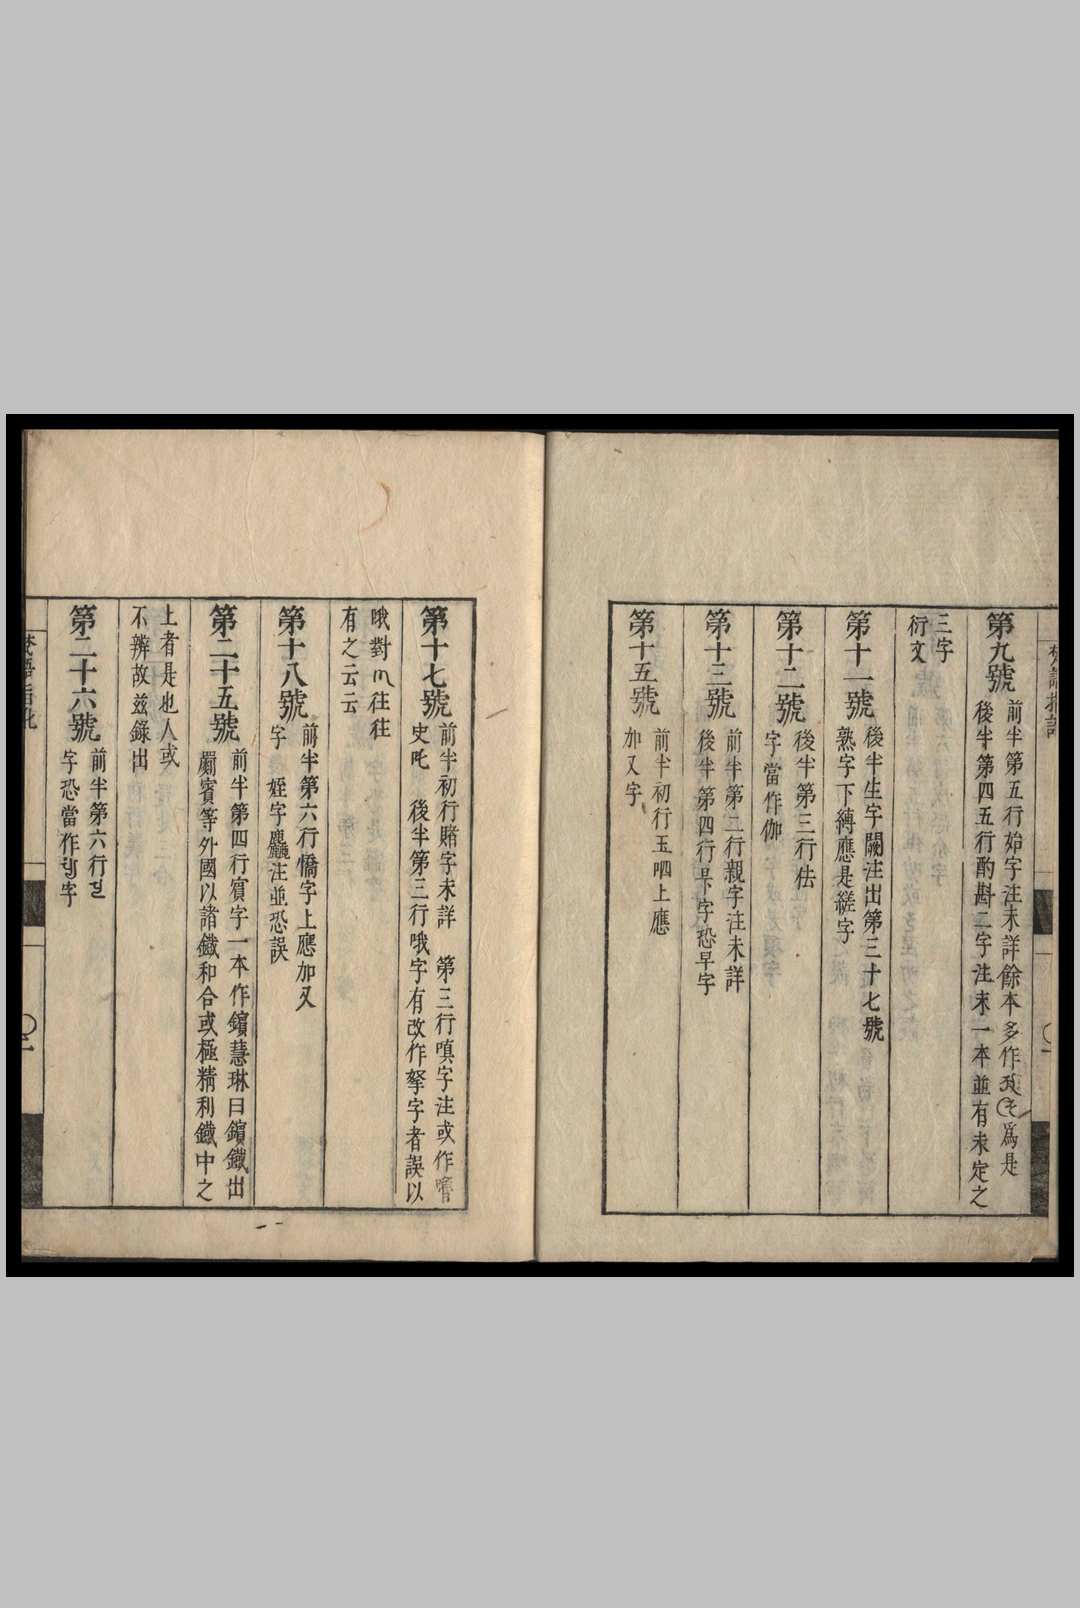 第九號
前半第五行始字注未詳餘本多作 爲是
後半第四五行酌斟二字注末一本並有未定之
三字
衍文
第十一號
後半生字闕注出第三十七號
熟字下縛應是縒字
第十二號
後半第三行佉
字當作伽
第十三號
前半第二行親字注未詳
後半第四行昗字恐早字
第十五號
前半初行玉呬上應
加又字
第十七號
前半初行賭字未詳 第三行嗔字注或作
史吒 後半第三行哦字有改作拏字者誤以
哦對 往往
有之云云
第十八號
前半第六行憍字上應加又
字 姪字 注並恐誤
第二十五號
前半第四行賓字一本作鑌慧琳曰鑌鐵出
罽賓等外國以諸鐵和合或極精利鐵中之
上者是也人或
不辨故兹錄出
第二十六號
前半第六行
字恐當作 字